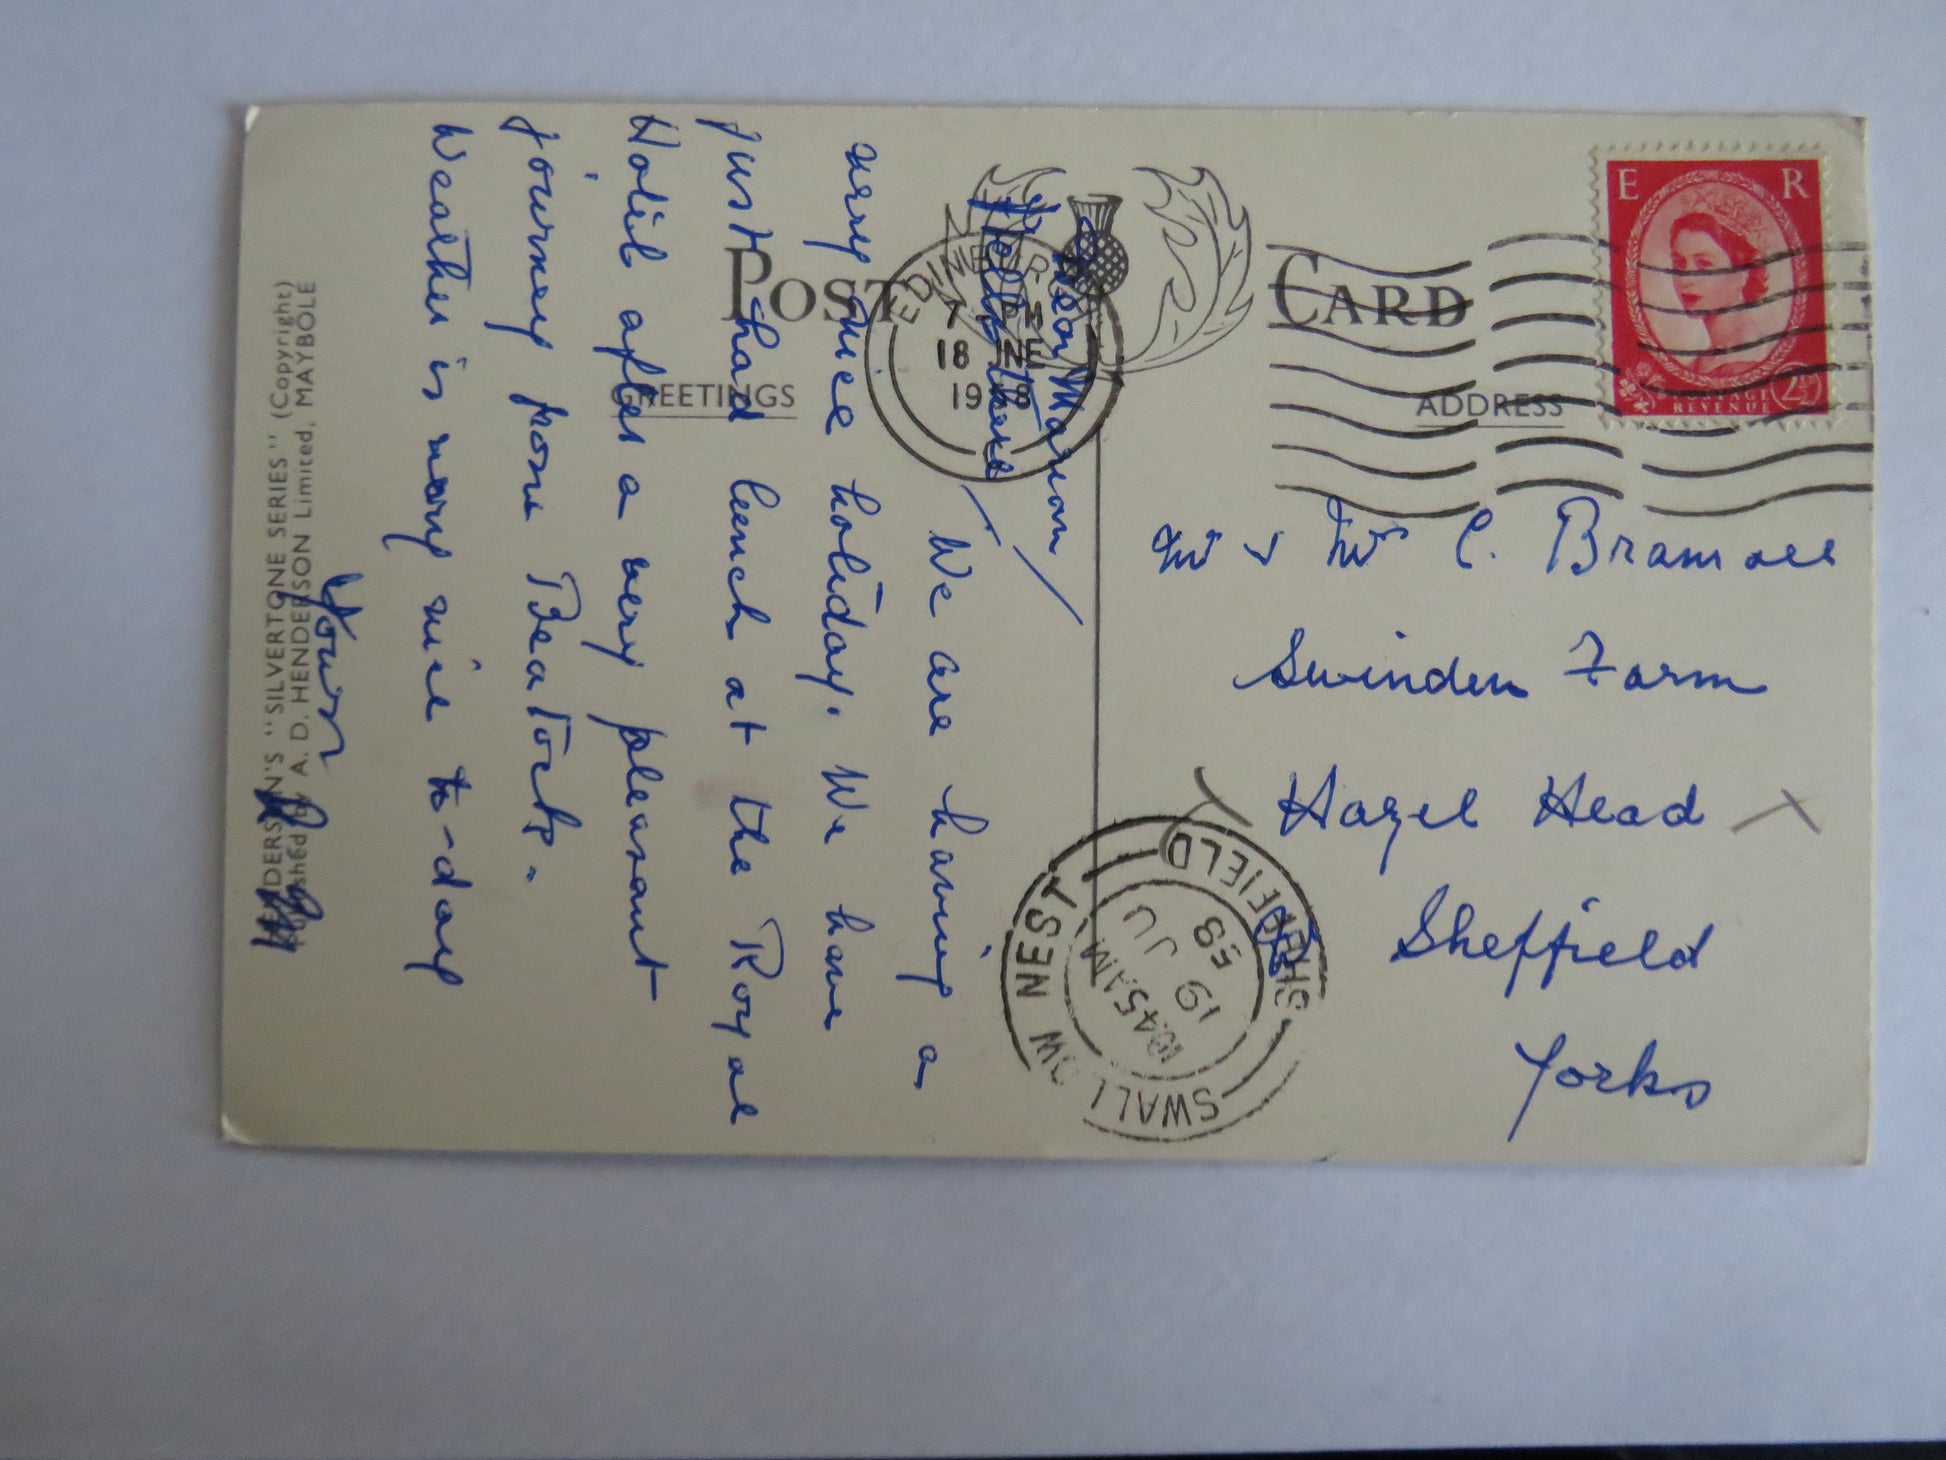 POST CARD
GREETINGS
ADDRESS
E R
POSTAGE
REVENUE
2½
EDINBURGH
7 PM
18 JNE
1958
SWALLOW NEST
SHEFFIELD
10.45 AM
19 JU
58
Dear Marion
We are having a
very nice holiday. We have
just had lunch at the Royal
Hotel after a very pleasant
journey from Beatock.
Weather is very nice to-day
Yours
Mr & Mrs C. Bramall
Swinden Farm
Hazel Head
Sheffield
Yorks
HENDERSON'S "SILVERTONE SERIES" (Copyright)
Published by A. D. HENDERSON Limited, MAYBOLE